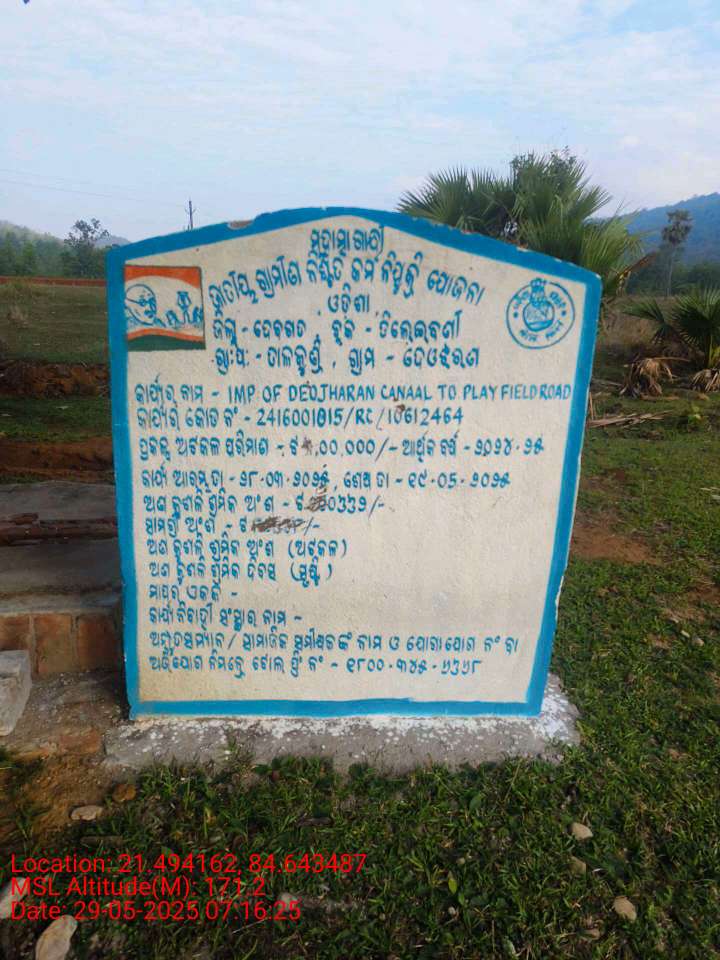 ମହାତ୍ମା ଗାନ୍ଧୀ
ଜାତୀୟ ଗ୍ରାମୀଣ ନିଶ୍ଚିତ କର୍ମ ନିଯୁକ୍ତି ଯୋଜନା
ଓଡ଼ିଶା
ଜିଲ୍ଲା - ଦେବଗଡ , ବ୍ଲକ - ତିଲେଇବଣୀ
ଗ୍ରା:ପଂ - ତାଳକୁଣ୍ଡ , ଗ୍ରାମ - ଦେଓଝରଣ
କାର୍ଯ୍ୟର ନାମ - IMP OF DEOJHARAN CANAAL TO PLAY FIELD ROAD
କାର୍ଯ୍ୟର କୋଡ ନଂ - 2416001015/RC/10612464
ପ୍ରକଳ୍ପ ଅଟକଳ ପରିମାଣ - ,00,000/- ଆର୍ଥିକ ବର୍ଷ - ୨୦୨୪-୨୫
କାର୍ଯ୍ୟ ଆରମ୍ଭ ତା - ୨୮·୦୩·୨୦୨୫ , ଶେଷ ତା - ୧୯·୦୫·୨୦୨୫
ଅଣ କୁଶଳୀ ଶ୍ରମିକ ଅଂଶ -
ସାମଗ୍ରୀ ଅଂଶ -
ଅଣ କୁଶଳୀ ଶ୍ରମିକ ଅଂଶ (ଅଟକଳ)
ଅଣ କୁଶଳୀ ଶ୍ରମିକ ଦିବସ (ସୃଷ୍ଟି)
ମାପର ଏକକ -
କାର୍ଯ୍ୟନିର୍ବାହୀ ସଂସ୍ଥାର ନାମ -
ସାମାଜିକ ନାମ ଓ ଯୋଗାଯୋଗ ନଂ ବା
ଅଭିଯୋଗ ନିମନ୍ତେ ଟୋଲ୍ ଫ୍ରି ନଂ - ୧୮୦୦-୩୪୫-
Location: 21.494162, 84.643487
MSL Altitude(M): 171.2
Date: 29-05-2025 07:16:25